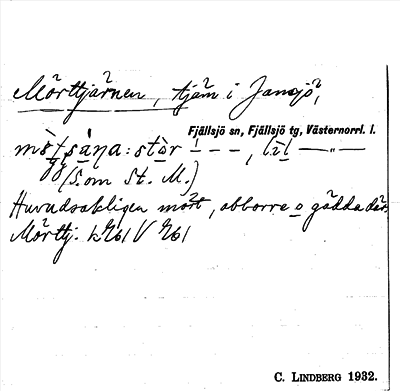 Mörttjärnen, tjärn i Jansjö,
Fjällsjö sn, Fjällsjö tg, Västernorrl. l.
: stor – – – , lìl – " –
(S. om St. M.)
Huvudsakligen mört, abborre o gädda där.
Mörttj.
C. LINDBERG 1932.